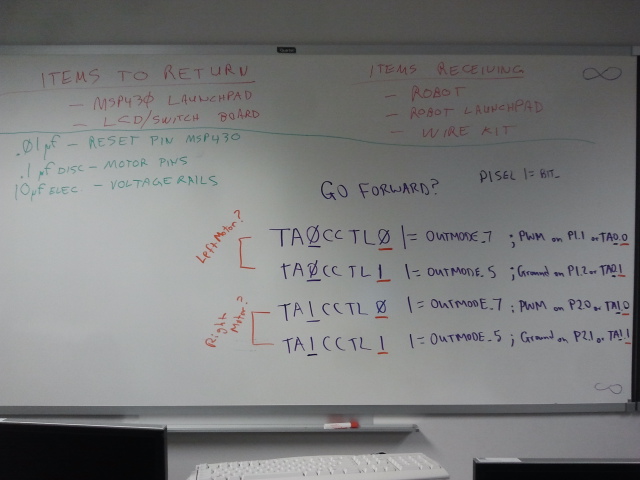 ITEMS TO RETURN
- MSP430 LAUNCHPAD
- LCD/SWITCH BOARD
ITEMS RECEIVING
- ROBOT
- ROBOT LAUNCHPAD
- WIRE KIT
∞
.01µf - RESET PIN MSP430
.1µf DISC - MOTOR PINS
10µf ELEC - VOLTAGE RAILS
GO FORWARD?
P1SEL |= BIT_
Left Motor?
TA0CCTL0 |= OUTMODE_7 ; PWM on P1.1 or TA0.0
TA0CCTL1 |= OUTMODE_5 ; Ground on P1.2 or TA0.1
Right Motor?
TA1CCTL0 |= OUTMODE_7 ; PWM on P2.0 or TA1.0
TA1CCTL1 |= OUTMODE_5 ; Ground on P2.1 or TA1.1
∞